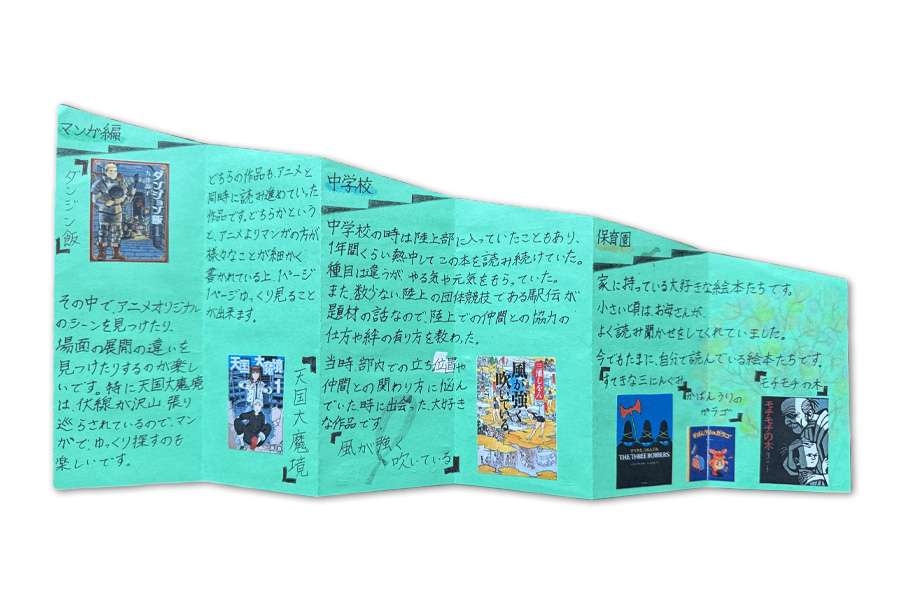 マンガ編
ダンジョン飯
ダンジョン飯
九井諒子
その中で、アニメオリジナル
のシーンを見つけたり、
場面の展開の違いを
見つけたりするのが楽し
いです。特に天国大魔境
は、伏線が沢山張り
巡らされているので、マン
ガでゆっくり探すのも
楽しいです。
どちらの作品も、アニメと
同時に読み進めていった
作品です。どちらかという
と、アニメよりマンガの方が
様々なことが細かく
書かれている上、1ページ
1ページゆっくり見ること
が出来ます。
天国大魔境
1
天国大魔境
中学校
中学校の時は陸上部に入っていたこともあり、
1年間くらい熱中してこの本を読み続けていた。
種目は違うが、やる気や元気をもらっていた。
また、数少ない陸上の団体競技である駅伝が
題材の話なので、陸上での仲間との協力の
仕方や絆の有り方を教わった。
当時部内での立ち位置や
仲間との関わり方に悩ん
でいた時に出会った、大好き
な作品です。
風が強く
吹いている
三浦しをん
風が強く
吹いている
保育園
家に持っている大好きな絵本たちです。
小さい頃は、お母さんが、
よく読み聞かせをしてくれていました。
今でもたまに、自分で読んでいる絵本たちです。
すてきな三にんぐみ
THE THREE ROBBERS
かばんうりの
ガラゴ
かばんうりのガラゴ
モチモチの木
モチモチの木